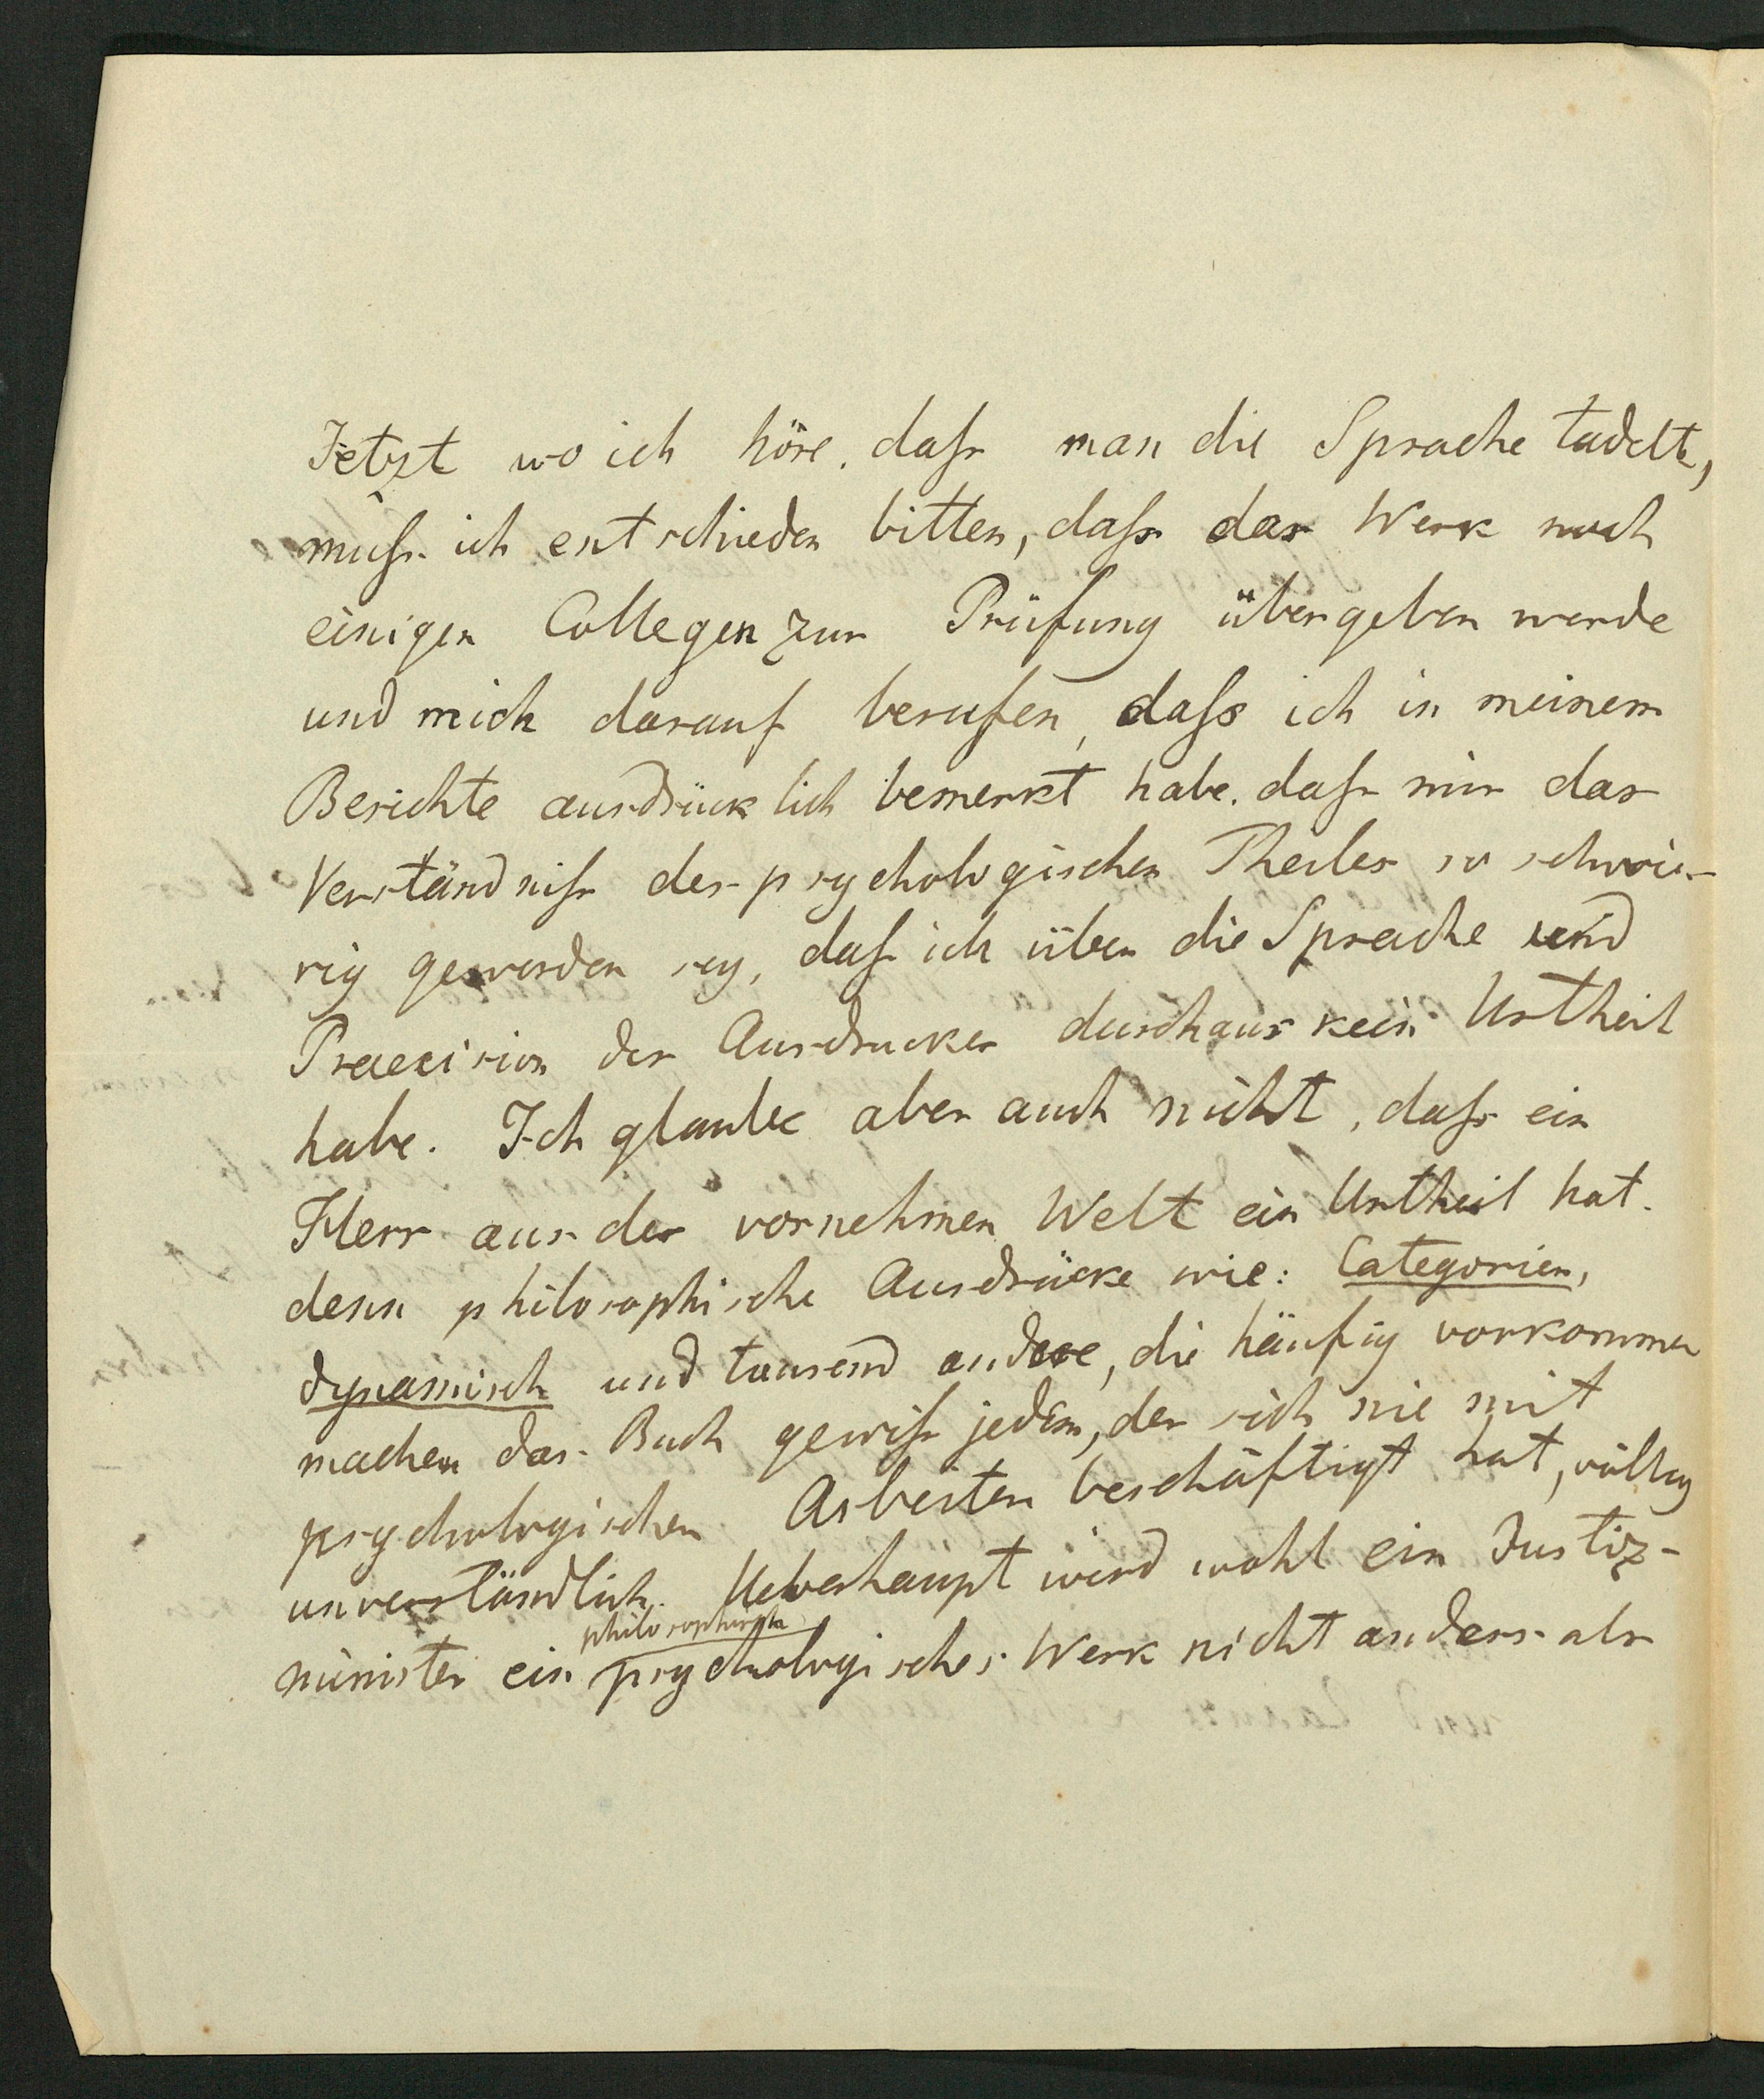 Jetzt wo ich höre, daſs man die Sprache tadelt,
muſs ich entschieden bitten, daſs das Werk noch
einigen Collegen zur Prüfung übergeben werde
und mich darauf berufen, daſs ich in meinem
Berichte ausdrücklich bemerkt habe, daſs mir das
Verständniſs des psychologischen Theiles so schwie-
rig geworden sey, daſs ich über die Sprache und
Praecision des Ausdruckes durchaus kein Urtheil
habe. Ich glaube aber auch nicht, daſs ein
Herr aus der vornehmen Welt ein Urtheil hat.
denn philosophische Ausdrücke wie: Categorien,
dynamisch und tausend andere, die häufig vorkommen
machen das Buch gewiſs jedem, der sich nie mit
psychologischen Arbeiten beschäftigt hat, völlig
unverständlich. Ueberhaupt wird wohl ein Justiz-
philosophisch
minister ein psychologisches Werk nicht anders als